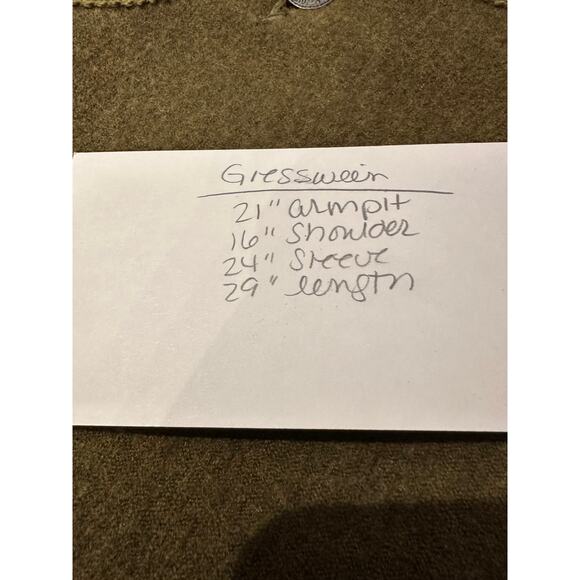 Giesswein
21" armpit
16" shoulder
24" sleeve
29" length